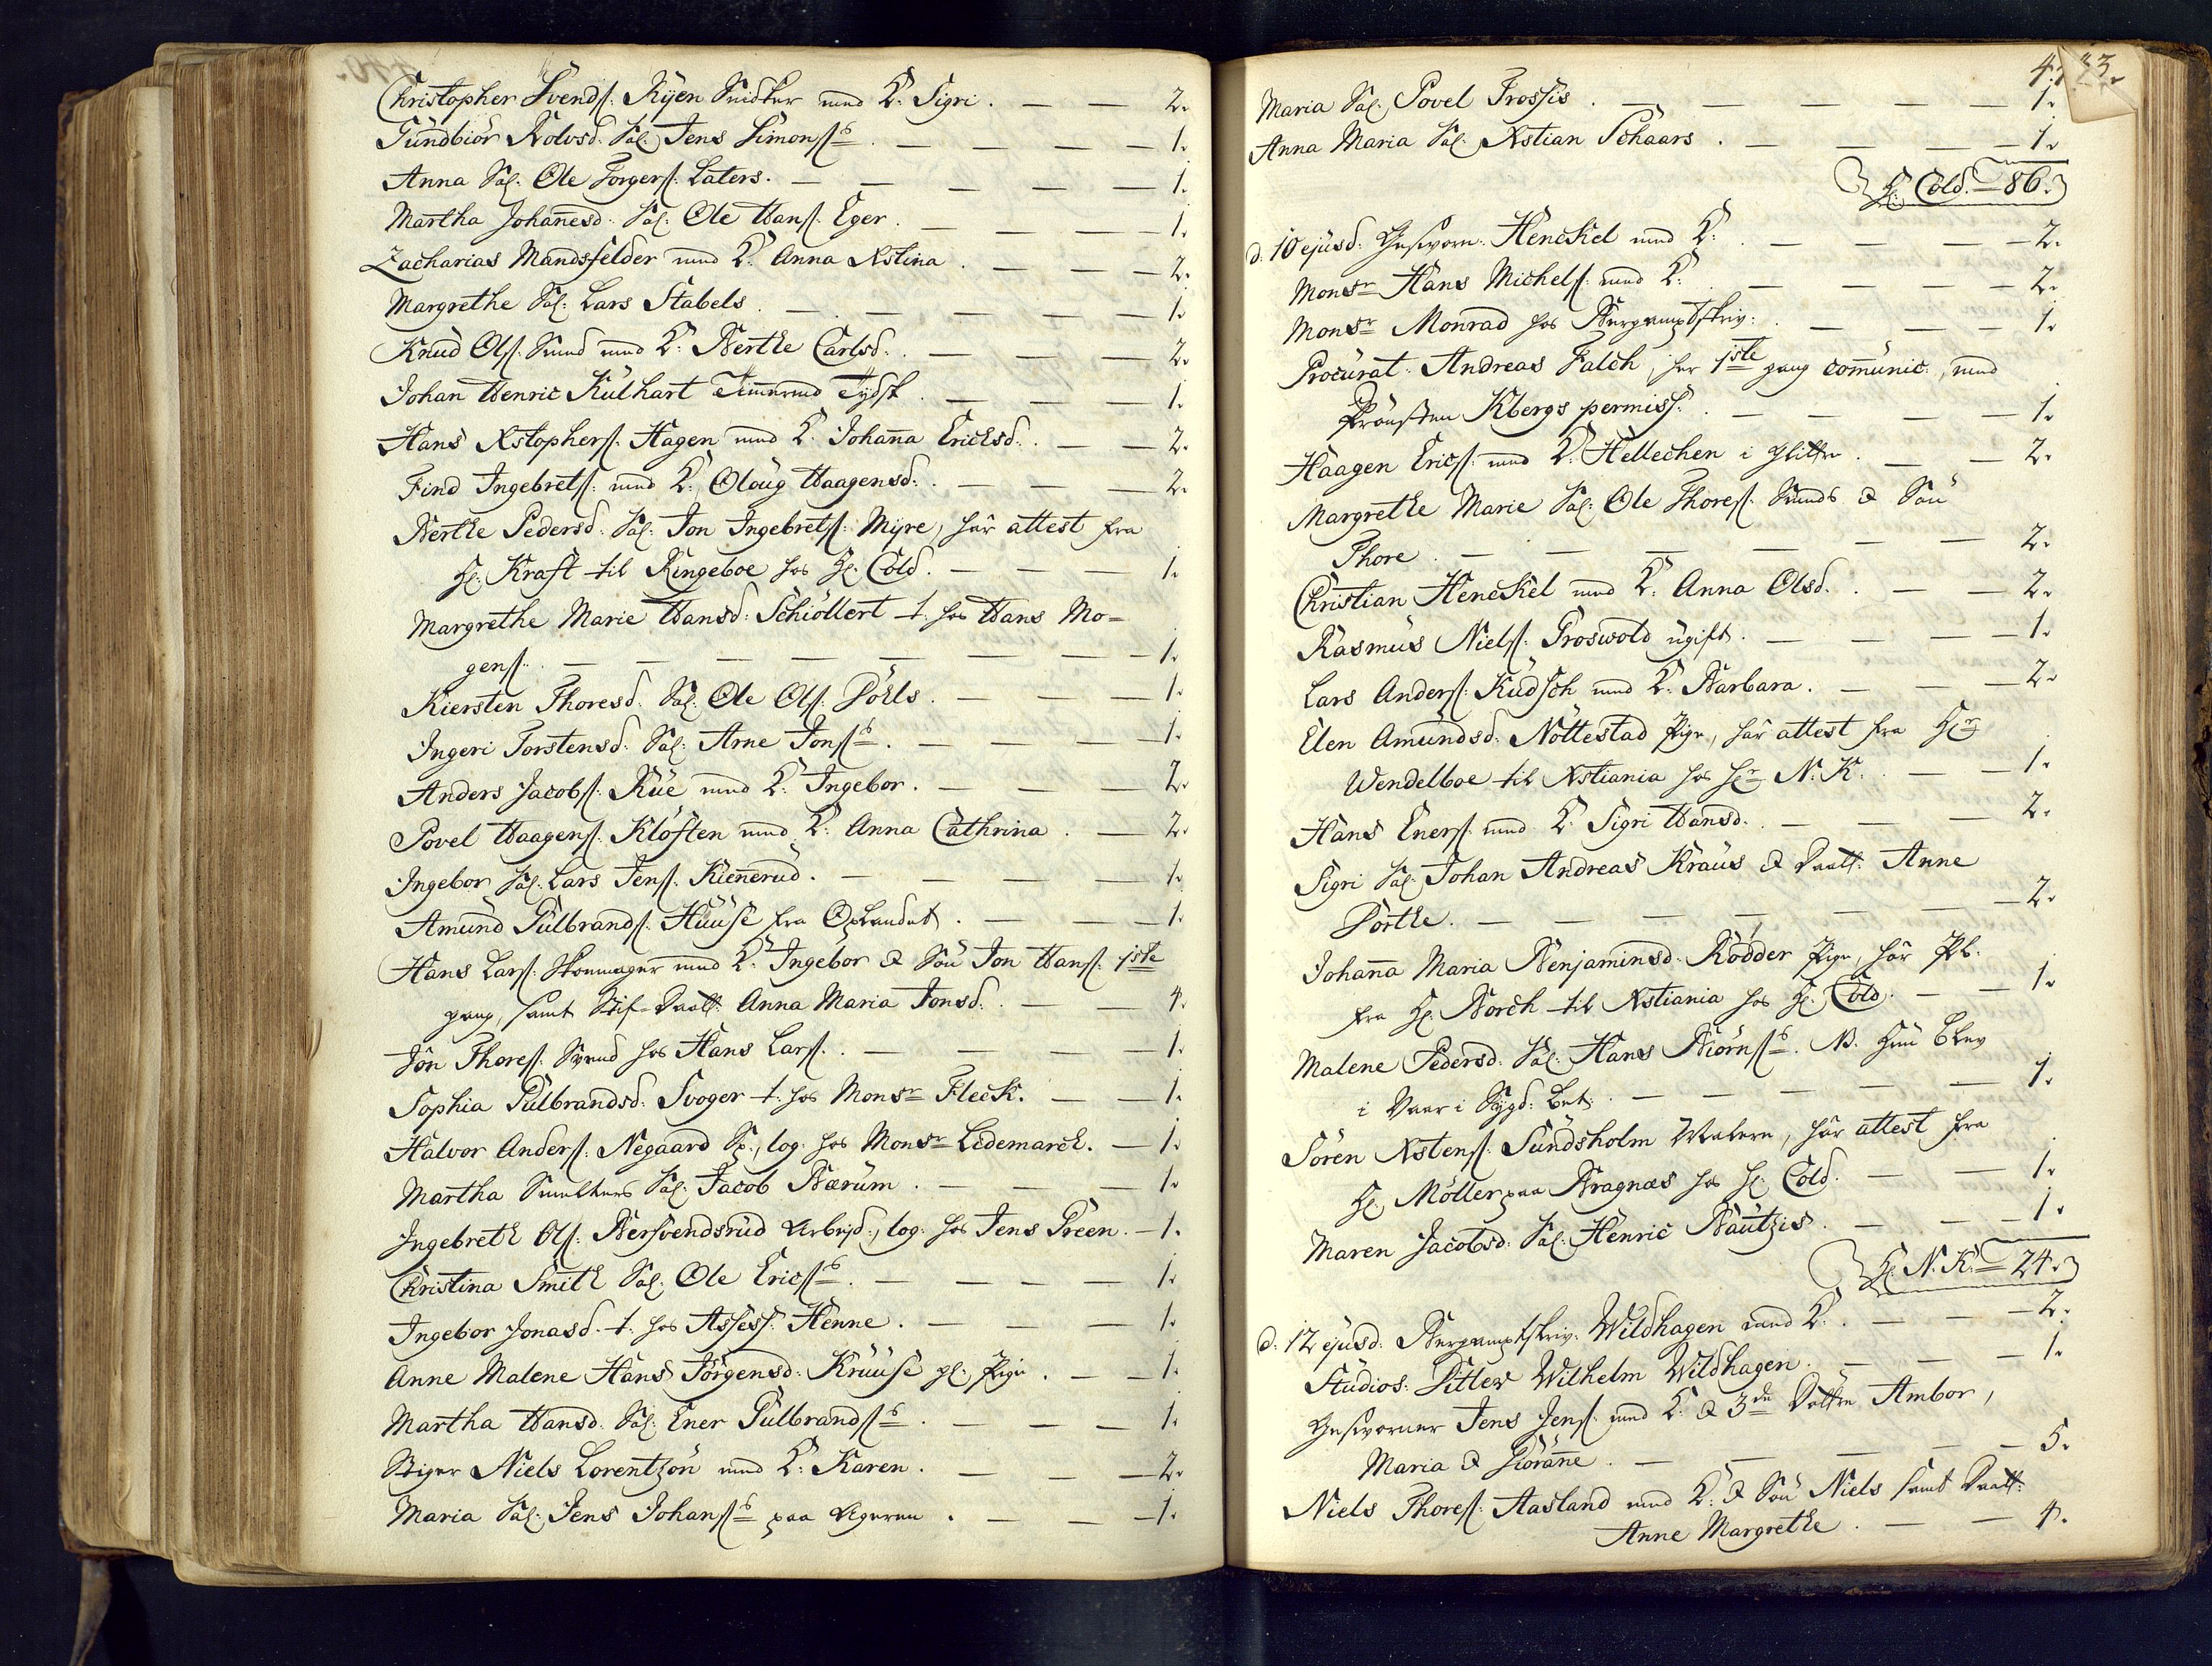 Christopher Svendſ: Ryen Snidker med K: Sigri. — — 2.
Gundbiör Rolvsd. Sal: Jens Simonſs. — — — — 1.
Anna Sal: Ole Torgerſ: Laters. — — — — 1.
Martha Johanesd: Sal: Ole Hanſ. Eger. — — — 1.
Zacharias Mandsfelder med K: Anna Xstina. — — — 2.
Margrethe Sal: Lars Stabels. — — — — 1.
Knud Olſ. Smed med K: Berthe Carlsd. — — — 2.
Johan Henric Kulhart Timermd Tydsk. — — — 1.
Hans Xstopherſ. Hagen med K. Johana Ericksd. — — 2.
Find Ingebretſ: med K: Oloug Haagensd: — — — 2.
Berthe Pedersd. Sal: Jon Ingebretſ: Myre, har attest fra
Hr: Kraft til Ringeboe hos Hr: Cold. — — — 1.
Margrethe Marie Hansd: Schiöllert t. hos Hans Mo=
genſ. — — — — — — — 1.
Kiersten Thoresd. Sal: Ole Olſ. Döhls. — — — 1.
Ingeri Torstensd: Sal: Arne Jonſs. — — — — 1.
Anders Jacobſ: Rüe med K: Ingebor. — — — 2.
Povel Haagenſ. Klöften med K: Anna Cathrina. — 2.
Ingebor Sal: Lars Jenſ. Kienerud. — — — — 1.
Amund Gulbrandſ. Huuse fra Oplandet. — — — 1.
Hans Larſ: Skoemager med K: Ingebor & Sön Jon Hanſ: 1ste
gang, samt Stif-Daatt: Anna Maria Jonsd. — — 4.
Jon Thoreſ: Svend hos Hans Larſ. — — — — 1.
Sophia Gulbrandsd: Svoger t. hos Monsr Fleck. — — 1.
Halvor Anderſ: Negaard log. hos Monsr Ledemarck. — 1.
Martha Smelters Sal: Jacob Bærum. — — — 1.
Ingebreth Olſ: Bersvendsrud Arbejd:, log: hos Jens Green. — 1.
Christina Smith Sal: Ole Ericſs. — — — — 1.
Ingebor Jonasd. t. hos Assess: Henne. — — — 1.
Anne Malene Hans Jörgensd: Kruuse gl: Pige. — — 1.
Martha Hansd. Sal: Ener Gulbrandſs. — — — 1.
Stiger Niels Lorentzön med K: Karen. — — — 2.
Maria Sal: Jens Johanſs paa Ageren. — — — 1.
Maria Sal: Povel Grossis. — — — — — 1.
Anna Maria Sal: Xstian Schaars. — — — — 1.
Hr: Cold. — 86.
d. 10 ejusd: Gesvorn: Henckel med K: — — — — 2.
Monsr Hans Michelſ: med K: — — — — 2.
Monsr Monrad hos Bergamptskriv: — — — 1.
Procurat: Andreas Falch, har 1ste gang comunic:, med
Prousten Kbergs permiss: — — — — 1.
Haagen Ericſ: med K: Hellechen i Hütten. — — 2.
Margrethe Marie Sal: Ole Thoreſ: Smeds & Sön
Thore. — — — — — — 2.
Christian Henckel med K: Anna Olsd. — — 2.
Rasmus Nielſ: Groswold ugift. — — — — 1.
Lars Anderſ: Kudsch med K: Barbara. — — — 2.
Elen Amundsd: Nöttestad Pige, har attest fra Hr
Wendelboe til Xstiania hos Hr N. K. — — 1.
Hans Enerſ: med K: Sigri Hansd. — — — 2.
Sigri Sal: Johan Andreas Kraus & Daatt: Anne
Dorthe. — — — — — — 2.
Johana Maria Benjaminsd. Rödder Pige, har
fra Hr: Borch til Xstiania hos Hr: Cold. — — 1.
Malene Pedersd: Sal: Hans Biörnſs. NB. Hun blev
i Vaar i Sygd: bet: — — — — 1.
Sören Xstenſ: Sundsholm har attest fra
Hr: Möller paa Bragnæs hos Hr: Cold. — — 1.
Maren Jacobsd: Sal: Henric Bautzis. — — — 1.
Hr. N. K. — 24.
d. 12 ejusd: Bergamptskriv: Wildhagen med K: — — 2.
Studios: Ditlew Wilhelm Wildhagen. — — — 1.
Gesvorner Jens Jenſ: med K: & 3de Döttre Ambor,
Maria & Giorane. — — — — 5.
Niels Thoreſ: Aasland med K: & Sön Niels samt Daatt:
Anne Margrethe. — — 4.